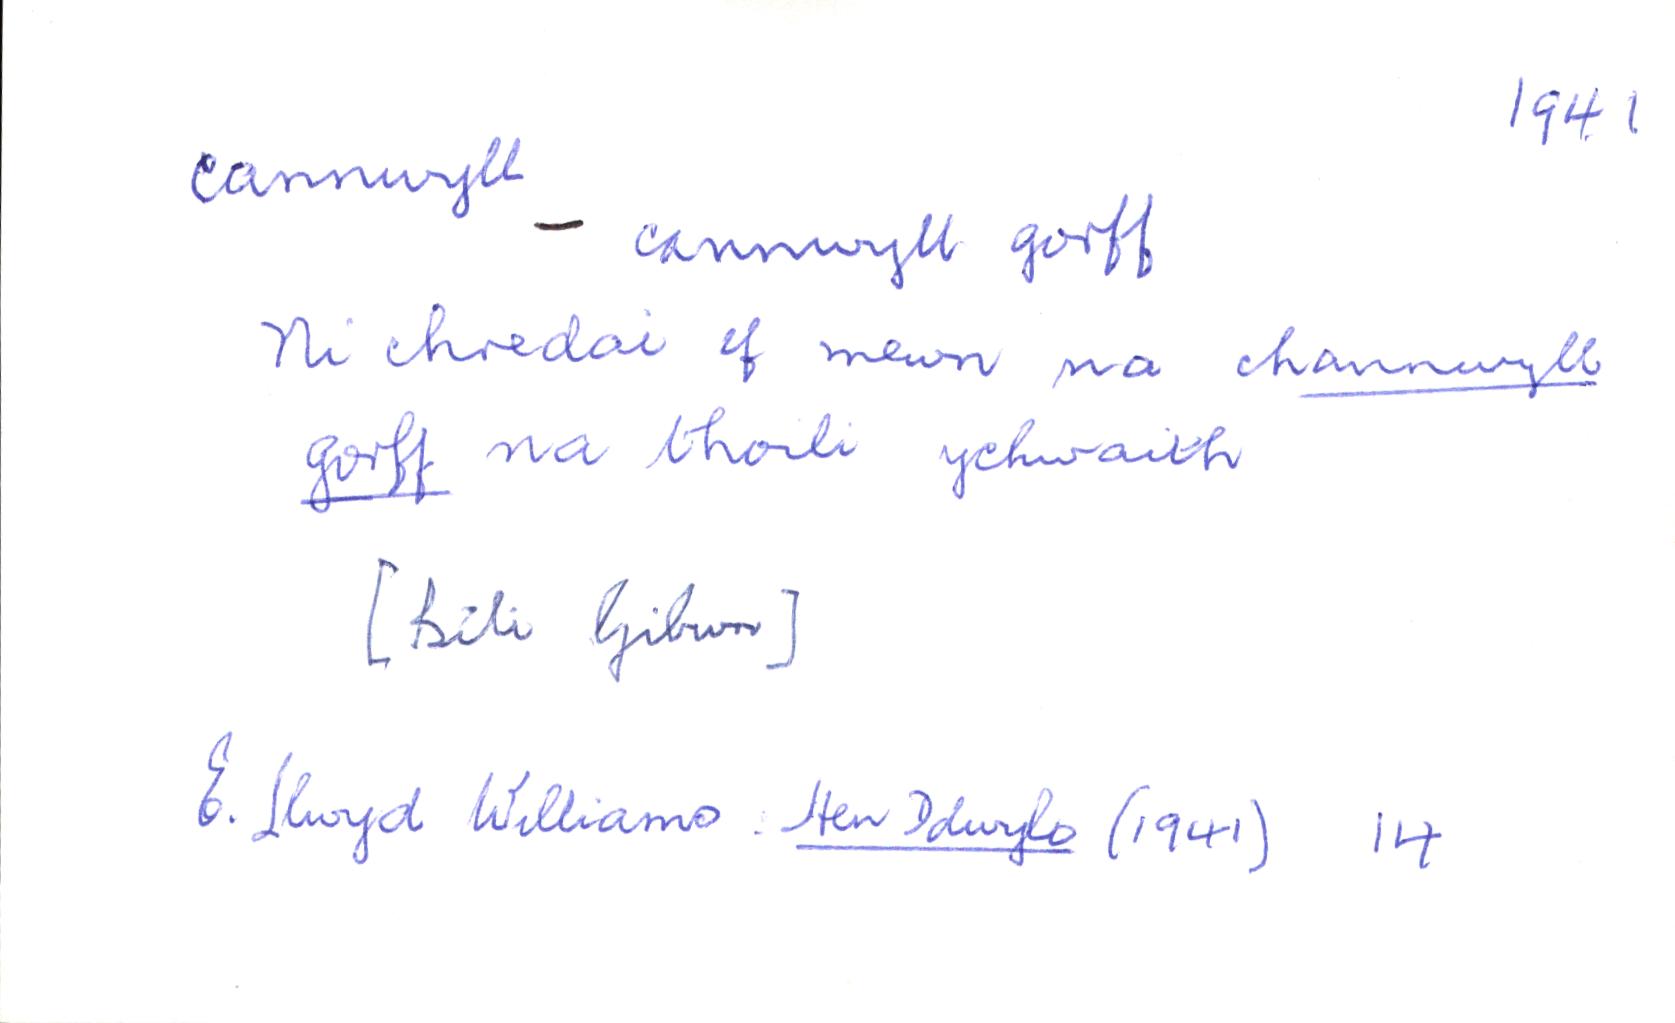 1941
cannwyll
– cannwyll gorff
Ni chredai ef mewn na channwyll
gorff na thoili ychwaith
[Bili Gibwn]
E. Llwyd Williams : Hen Ddwylo (1941) 14